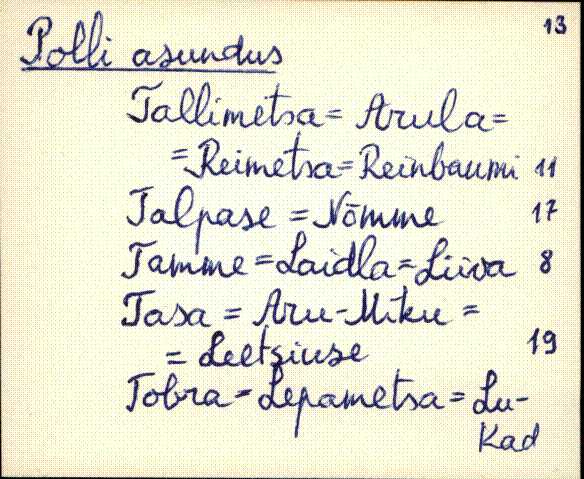 13
Polli asundus
Tallimetsa = Arula =
= Reimetsa = Reinbaumi 11
Talpase = Nõmme 17
Tamme = Laidla = Liiva 8
Tasa = Aru-Miku =
= Leetsiuse 19
Tobra = Lepametsa = Lu-
kad